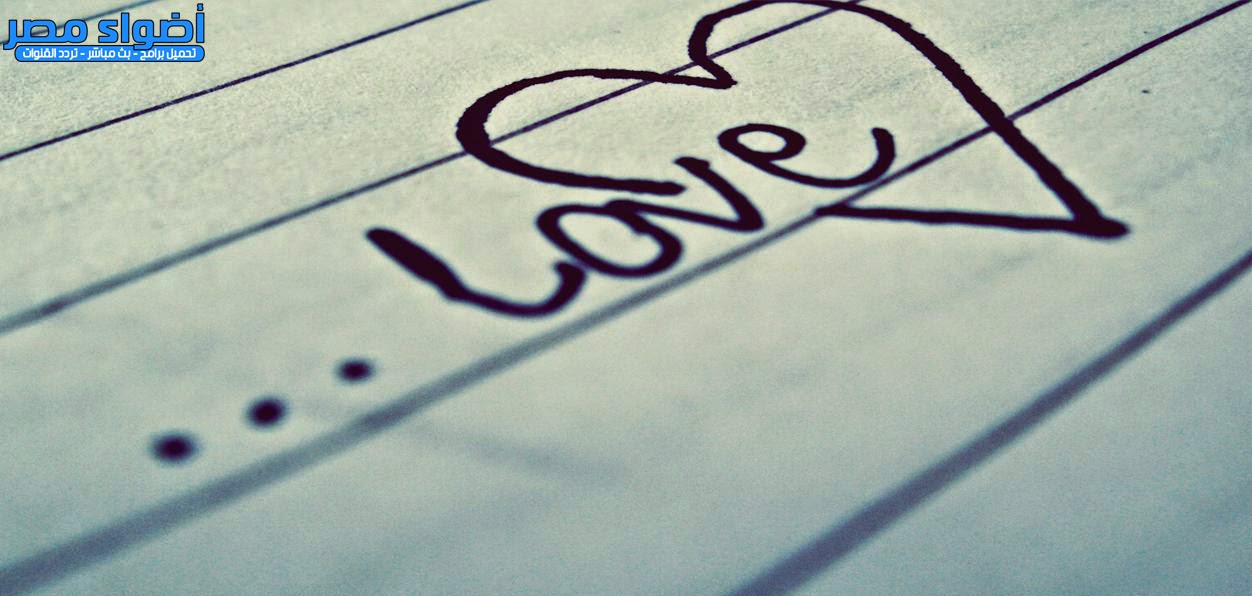 أضواء مصر
تحميل برامج - بث مباشر - تردد القنوات
... Love